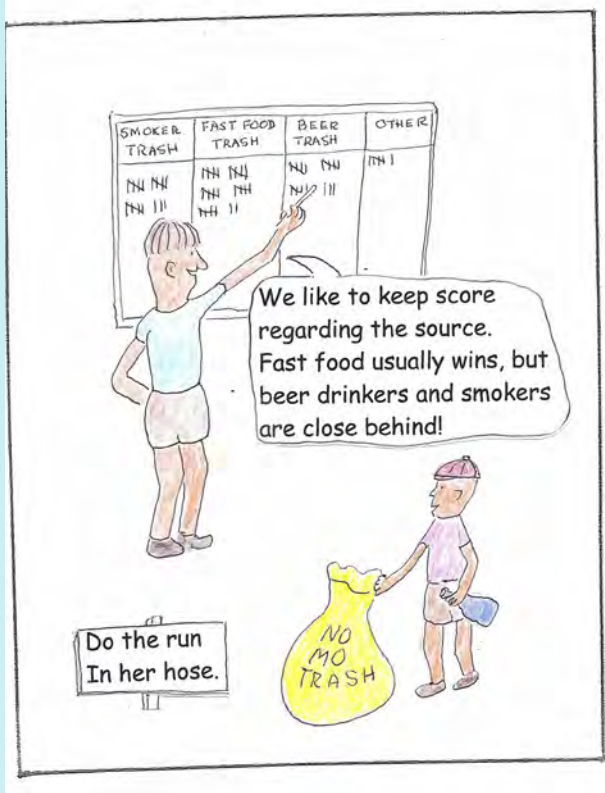 SMOKER
TRASH
FAST FOOD
TRASH
BEER
TRASH
OTHER
We like to keep score
regarding the source.
Fast food usually wins, but
beer drinkers and smokers
are close behind!
NO
MO
TRASH
Do the run
In her hose.